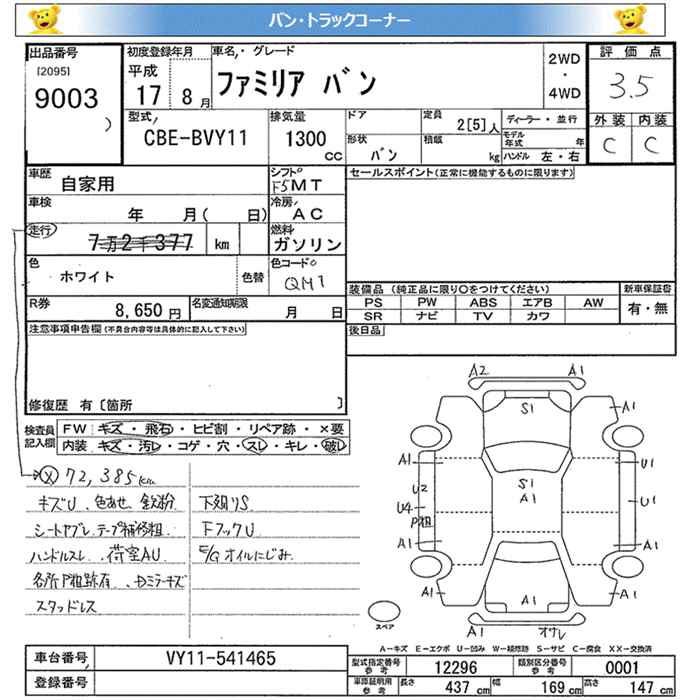 バン・トラックコーナー
出品番号
[2095]
9003
)
初度登録年月
平成
17 8月
車名,・グレード
ファミリア バン
2WD
・
4WD
評価点
3.5
外装 内装
C C
型式,
CBE-BVY11
排気量
1300
CC
ドア
形状
バン
定員
2[5]人
積載
kg
ディーラー・並行
モデル年式 年
ハンドル 左・右
車歴
自家用
シフト
F5MT
車検
年 月( 日)
冷房,
AC
走行
7万2千377
km
燃料
ガソリン
色
ホワイト
色替
色コード
QM1
R券
8,650円
名変通知期限
月 日
セールスポイント(正常に機能するものに限ります)
装備品 (純正品に限り〇をつけてください)
PS PW ABS エアB AW
SR ナビ TV カワ
新車保証書
有・無
後日品
注意事項申告欄(不具合内容等は具体的に記入して下さい)
修復歴 有〔箇所 〕
検査員記入欄
FW キズ・飛石・ヒビ割・リペア跡・×要
内装 キズ・汚レ・コゲ・穴・スレ・キレ・破レ
72,385km
キズU、色あせ、鉄粉
シートヤブレ、テープ補修粗
ハンドルスレ、荷室AU
各所P粗跡有、Dミラーキズ
スタッドレス
下廻りS
FフックU
E/Gオイルにじみ
A2 A1
S1
A1
A1
U1
U2
S1
A1
U4
U1
P粗
A1
A1
A1
A1
A1
A1
オサレ
スペア
A-キズ E-エクボ U-凹み W-補修跡 S-サビ C-腐食 XX-交換済
車台番号
VY11-541465
登録番号
型式指定番号
参考
12296
類別区分番号
参考
0001
車庫証明用
参考
長さ 437cm
幅 169cm
高さ 147cm